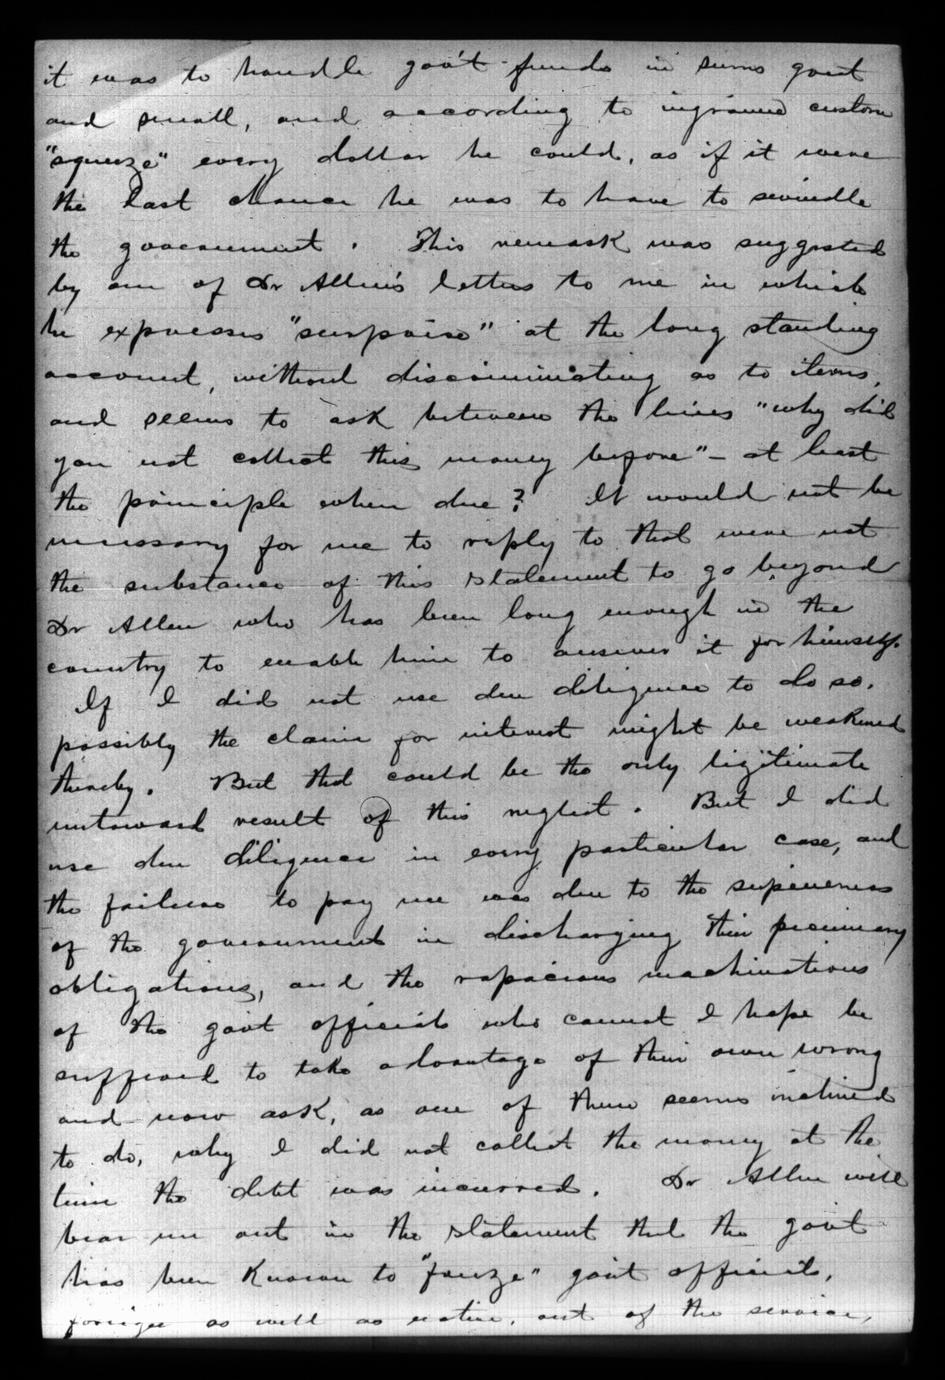 it was to handle gov't funds in sums great
and small, and according to ingrained custom
"squeeze" every dollar he could, as if it were
the last chance he was to have to swindle
the government. This remark was suggested
by one of Dr Allen's letters to me in which
he expresses "surprise" at the long standing
account, without discriminating as to items,
and seems to ask between the lines "why did
you not collect this money before" – at least
the principle when due? It would not be
necessary for me to reply to that were not
the substance of this statement to go beyond
Dr Allen who has been long enough in the
country to enable him to answer it for himself.
If I did not use due diligence to do so,
possibly the claim for interest might be weakened
thereby. But that could be the only legitimate
untoward result of this neglect. But I did
use due diligence in every particular case, and
the failure to pay me was due to the supineness
of the government in discharging their pecuniary
obligations, and the rapacious machinations
of the gov't officials who cannot I hope be
suffered to take advantage of their own wrong
and now ask, as one of them seems inclined
to do, why I did not collect the money at the
time the debt was incurred. Dr Allen will
bear me out in the statement that the govt
has been known to "freeze" gov't officials,
foreign as well as native, out of the service,